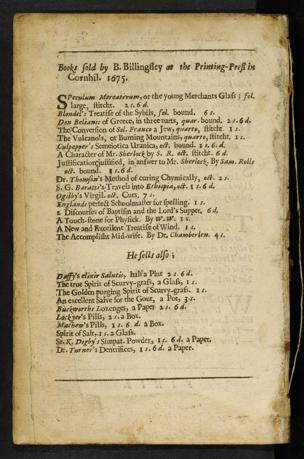 Books sold by B. Billingsley at the Printing-Press in
Cornhil. 1675.
SPeculum Mercatorum, or the young Merchants Glass; fol.
large, stitcht. 2 s. 6 d.
Blondel's Treatise of the Sybils, fol. bound. 6 s.
Don Belianis of Greece, in three parts, quar. bound. 2 s. 6 d.
The Conversion of Sol. Franco a Jew, quarto, stitcht. 1 s.
The Volcano's, or Burning Mountains, quarto, stitcht. 1 s.
Culpepper's Semeiotica Uranica, oct. bound. 2 s. 6 d.
A Character of Mr. Sherlock by S. R. oct. stitcht. 6 d.
Justification justified, in answer to Mr. Sherlock. By Sam. Rolls
oct. bound. 1 s. 6 d.
Dr. Thomson's Method of curing Chymically, oct. 2 s.
S. G. Baratti's Travels into Ethiopia, oct. 1 s. 6 d.
Ogilby's Virgil. oct. Cuts, 7 s.
Englands perfect Schoolmaster for spelling. 1 s.
2 Discourses of Baptism and the Lord's Supper. 6 d.
A Touch-stone for Physick. By W. W. 1 s.
A New and Excellent Treatise of Wind. 1 s.
The Accomplisht Mid-wife. By Dr. Chamberlen. 4 s.
He sells also;
Daffy's elixir Salutis, half a Pint 2 s. 6 d.
The true Spirit of Scurvy-grass, a Glass, 1 s.
The Golden purging Spirit of Scurvy-grass. 1 s.
An excellent Salve for the Gout, a Pot, 3 s.
Buckworths Lozenges, a Paper 2 s. 6 d.
Lockyer's Pills, 2 s. a Box.
Mathew's Pills, 1 s. 6. d. a Box.
Spirit of Salt, 1 s. a Glass.
Sr. K. Digby's Simpat. Powder, 1 s. 6 d. a Paper.
Dr. Turner's Dentrifices, 1 s. 6 d. a Paper.